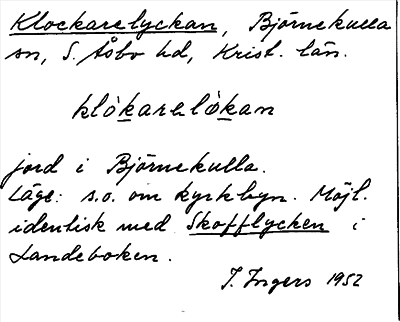 Klockarelyckan, Björnekulla
sn, S. Åsbo hd, Krist. län.
klókarelòkan
jord i Björnekulla.
Läge: s.o. om kyrkbyn. Möjl.
identisk med Skofflycken i
Landeboken.
I. Ingers 1952